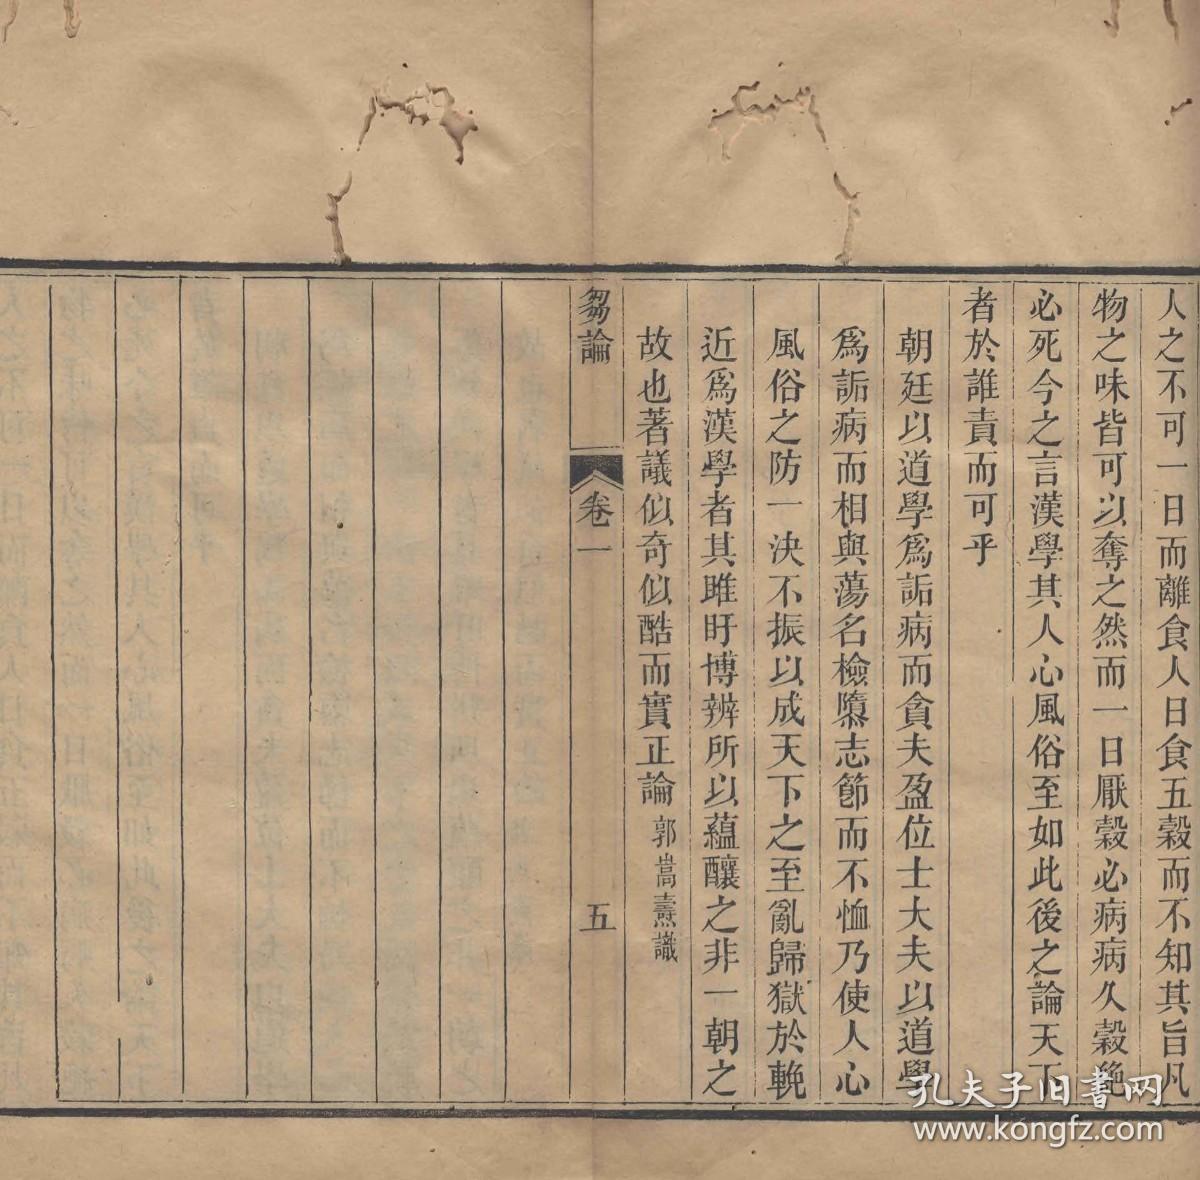 人之不可一日而離食人日食五穀而不知其旨凡
物之味皆可以奪之然而一日厭穀必病病久穀絶
必死今之言漢學其人心風俗至如此後之論天下
者於誰責而可乎
朝廷以道學爲詬病而貪夫盈位士大夫以道學
爲詬病而相與蕩名檢隳志節而不恤乃使人心
風俗之防一決不振以成天下之至亂歸獄於輓
近爲漢學者其雎盱博辨所以蘊釀之非一朝之
故也著議似奇似酷而實正論 郭嵩燾識
芻論 卷一 五
孔夫子旧书网
www.kongfz.com